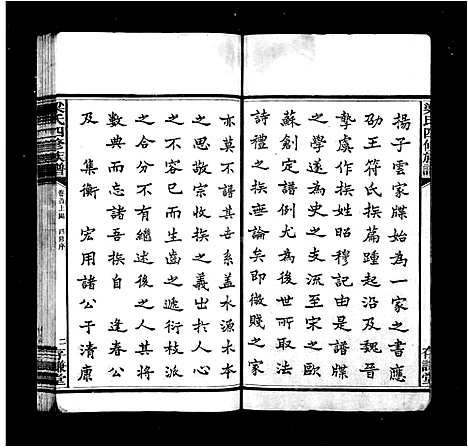 梁氏四修族譜
揚子雲家牒始為一家之書應
劭王符氏族篇踵起沿及魏晉
摯虞作族姓昭穆記由是譜牒
之學遂為史之支流至宋之歐
蘇創定譜式尤為後世所取法
詩禮之族無論矣即微賤之家
亦莫不詳其世系蓋水源木本
之思敬宗收族之義出於人心
之不容已而生齒之遞衍枝派
之紛分不有繼述後之人其將
數典而忘諸吾族自 逢春公
及 集衡 宏用諸公于清康
梁氏四修族譜
卷首上編 四修序
二